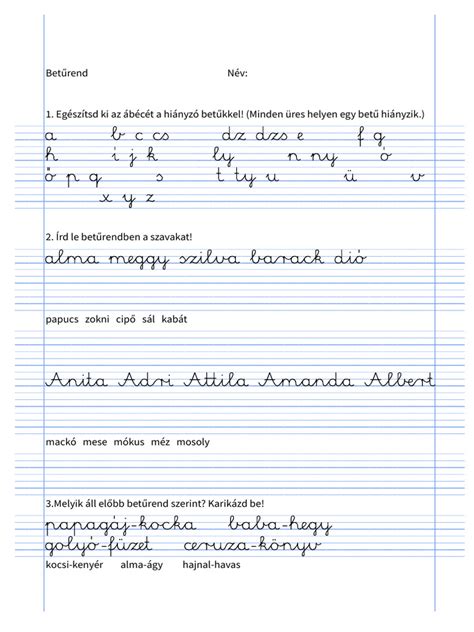 Betűrend Név:
1. Egészítsd ki az ábécét a hiányzó betűkkel! (Minden üres helyen egy betű hiányzik.)
a b c cs dz dzs e f g
h i j k ly n ny ó
ő p q s t ty u ü v
x y z
2. Írd le betűrendben a szavakat!
alma meggy szilva barack dió
papucs zokni cipő sál kabát
Anita Adri Attila Amanda Albert
mackó mese mókus méz mosoly
3.Melyik áll előbb betűrend szerint? Karikázd be!
papagáj-kocka baba-hegy
golyó-füzet ceruza-könyv
kocsi-kenyér alma-ágy hajnal-havas